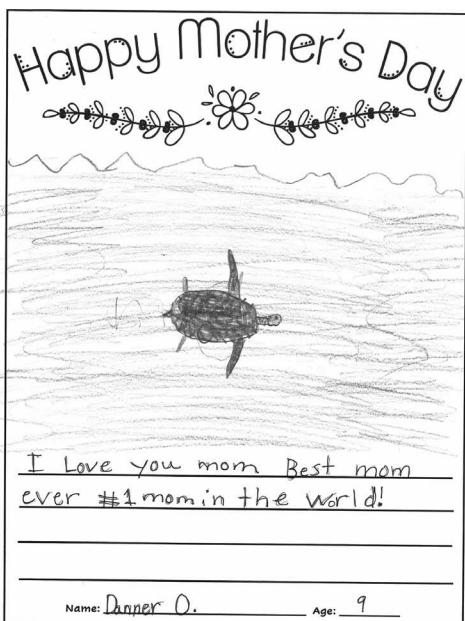 Happy Mother's Day
I Love you mom Best mom
ever #1 mom in the world!
Name: Danner O. Age: 9